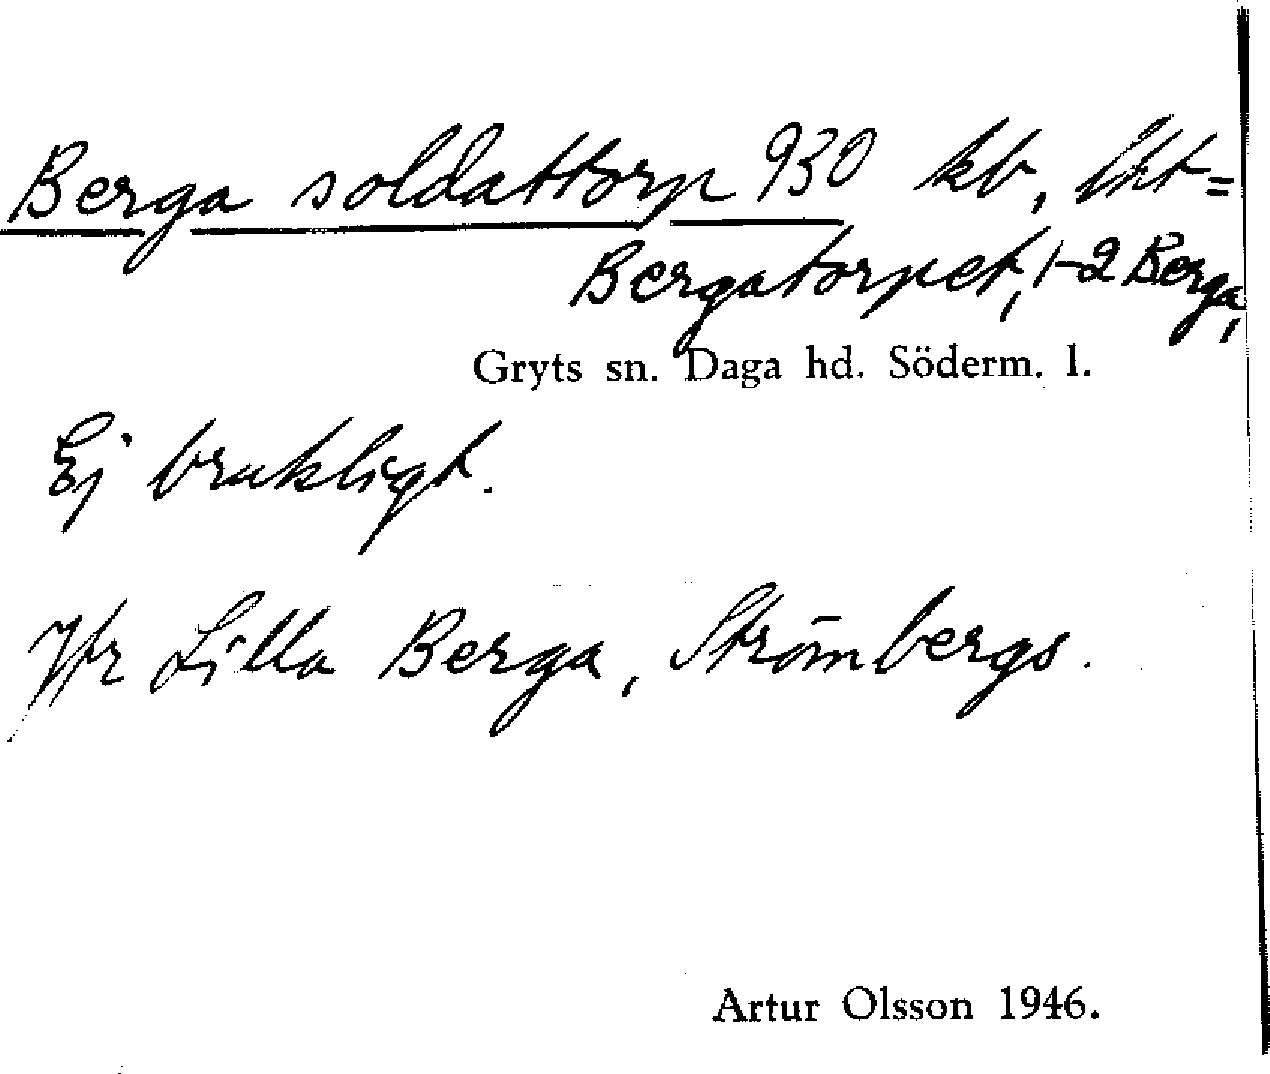 Berga soldattorp 930 kb, lht =
Bergatorpet, 1-2 Berga,
Gryts sn. Daga hd. Söderm. l.
Ej brukligt.
Jfr Lilla Berga, Strömbergs.
Artur Olsson 1946.